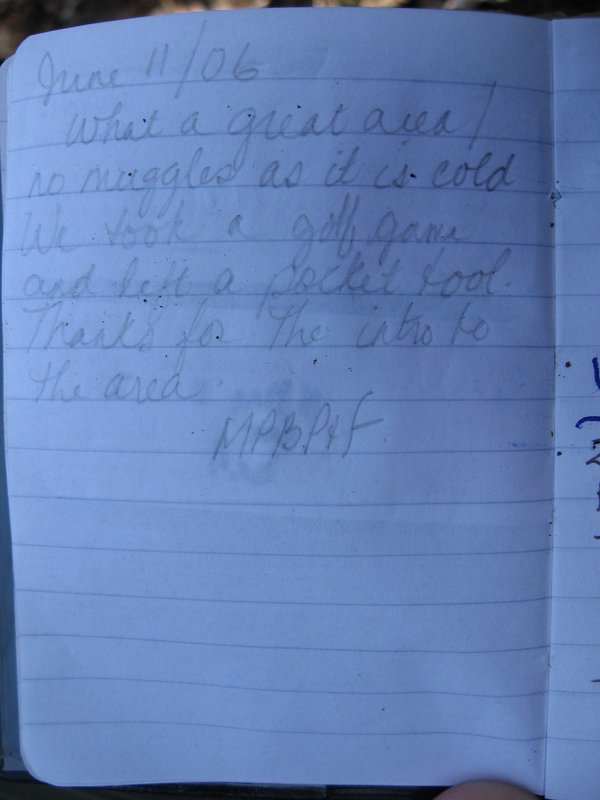 June 11/06
What a great area!
no muggles as it is cold
We took a golf game
and left a pocket tool.
Thanks for the intro to
the area
MPBP&F